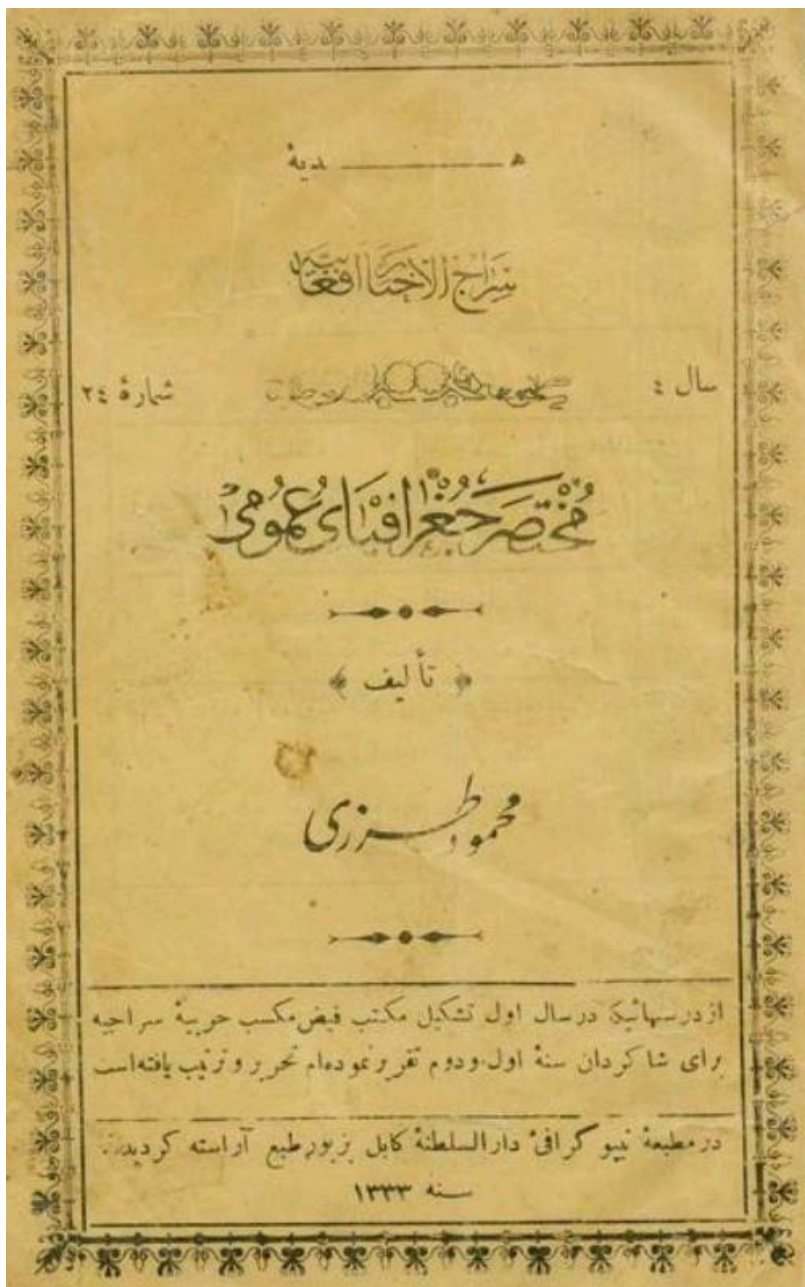 هدیهٔ
سراج الاخبار افغانیه
سال ٤
شمارهٔ ٢٤
مختصر جغرافیای عمومی
تألیف
محمود طرزی
از درسهائیکه در سال اول تشکیل مکتب فیض مکسب حربیهٔ سراجیه
برای شاکردان سنهٔ اول و دوم تقریر نموده‌ام تحریر و ترتیب یافته‌است
در مطبعهٔ تیپو گرافئ دار السلطنهٔ کابل بزیور طبع آراسته کردید
سنه ١٣٣٣